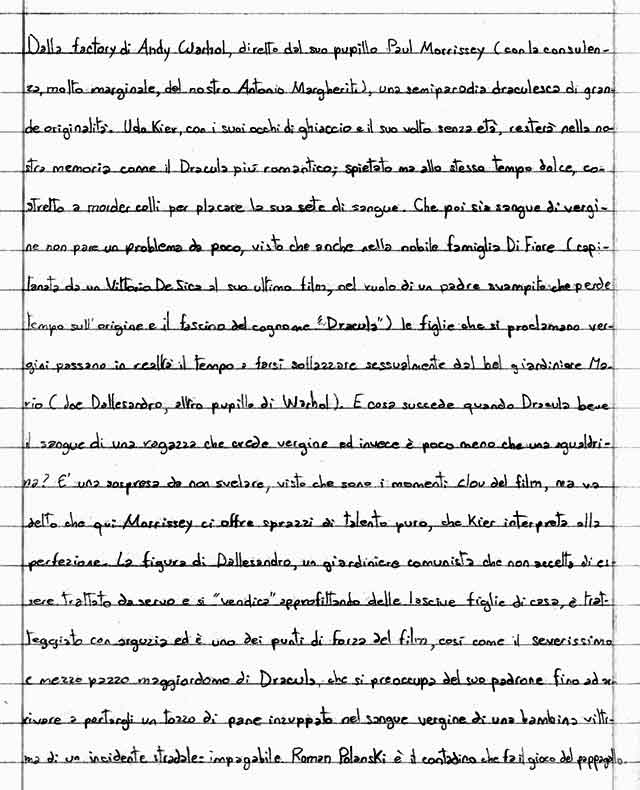 Dalla factory di Andy Warhol, diretto dal suo pupillo Paul Morrissey (con la consulen-
za, molto marginale, del nostro Antonio Margheriti), una semiparodia draculesca di gran-
de originalità. Udo Kier, con i suoi occhi di ghiaccio e il suo volto senza età, resterà nella no-
stra memoria come il Dracula più romantico; spietato ma allo stesso tempo dolce, co-
stretto a morder colli per placare la sua sete di sangue. Che poi sia sangue di vergi-
ne non pare un problema da poco, visto che anche nella nobile famiglia Di Fiore (capi-
tanata da un Vittorio De Sica al suo ultimo film, nel ruolo di un padre svampito che perde
tempo sull'origine e il fascino del cognome "Dracula") le figlie che si proclamano ver-
gini passano in realtà il tempo a farsi sollazzare sessualmente dal bel giardiniere Ma-
rio (Joe Dallesandro, altro pupillo di Warhol). E cosa succede quando Dracula beve
il sangue di una ragazza che crede vergine ed invece è poco meno che una sgualdri-
na? E' una sorpresa da non svelare, visto che sono i momenti clou del film, ma va
detto che qui Morrissey ci offre sprazzi di talento puro, che Kier interpreta alla
perfezione. La figura di Dallesandro, un giardiniere comunista che non accetta di es-
sere trattato da servo e si "vendica" approfittando delle lascive figlie di casa, è trat-
teggiato con arguzia ed è uno dei punti di forza del film, così come il severissimo
e mezzo pazzo maggiordomo di Dracula, che si preoccupa del suo padrone fino ad ar-
rivare a portargli un tozzo di pane inzuppato nel sangue vergine di una bambina vitti-
ma di un incidente stradale: impagabile. Roman Polanski è il contadino che fa il gioco del pappagallo.